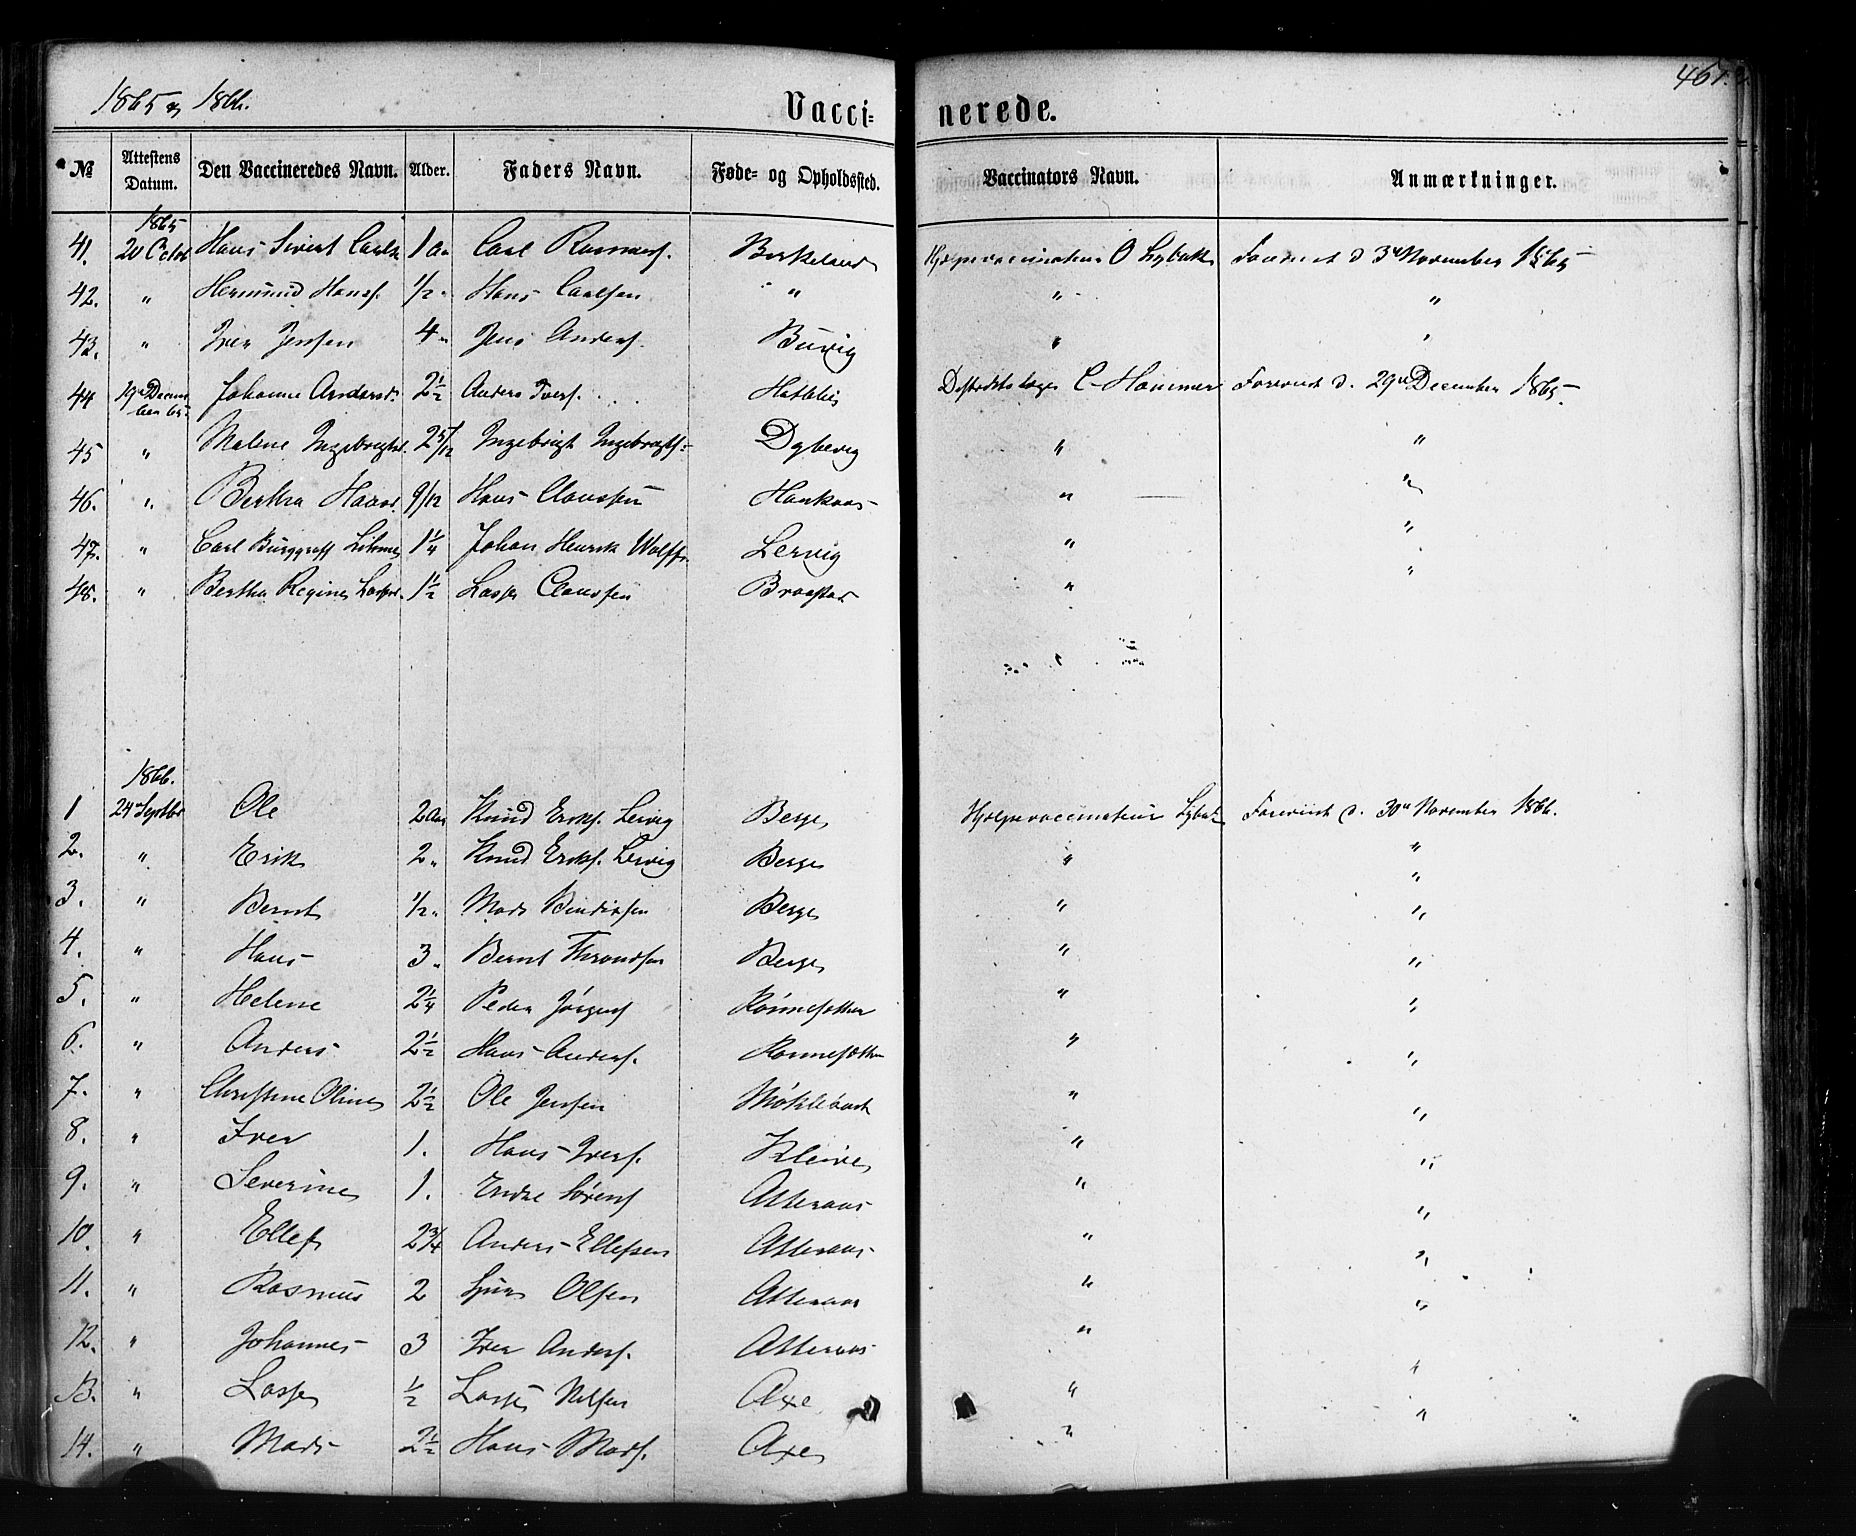 1865 & 1866.
Vacci-nerede.
467.
№ Attestens Datum. Den Vaccineredes Navn. Alder. Faders Navn. Føde- og Opholdssted. Vaccinators Navn. Anmærkninger.
1865
41. 20 Octob Hans Sivert Carls 1 Aar Carl Rasmusf. Birkeland Hjelpevaccinateur O Lybæk Forevist d 3de November 1865
42. " Hermund Hansf. 1/2 " Hans Carlsen " " "
43. " Iver Jensen 4 " Jens Andersf. Buvig " "
44 19de Decem ber 65 Johanne Andersd. 2 1/2 Anders Iversf. Hatlelie Distriktslæge C Hammer Forevist d. 29de December 1865.
45 " Malene Ingebrigtsd. 2 5/12 Ingebrigt Ingebrigts- Dybevig " "
46. " Bertha Hansd. 9/12 Hans Claussen Haukaas " "
47. " Carl Burggraff 1 1/4 Johan Henrik Wolff Lervig " "
48. " Bertha Regine Lassesd. 1 1/2 Lasse Claussen Braastad " "
1866.
1 24 Septbr Ole 2 Aar Knud Eriksf. Lervig Berge Hjelpevaccinateur Lybæk Forevist d. 30te November 1866.
2. " Erik 2 " Knud Eriksf. Lervig Berge " "
3. " Bernt 1/2 " Mads Bendixsen Berge " "
4. " Hans 3 " Bernt Throndsen Berge " "
5. " Helene 2 1/4 Peder Jørgensf Rønnesetter " "
6. " Anders 2 1/2 Hans Andersf. Rønnesetter " "
7. " Christine Oline 2 1/2 Ole Jensen Møklebust " "
8. " Iver 1. Hans Iversf. Kleive " "
9. " Severine 1. Endre Sørensf Atteraas " "
10. " Ellef 2 3/4 Anders Ellefsen Atteraas " "
11. " Rasmus 2 Sjur Olsen Atteraas " "
12. " Johannes 3 Iver Andersf. Atteraas " "
13. " Lasse 1/2 Lasse Nilsen Axe " "
14. " Mads 2 1/2 Hans Madsf. Axe " "